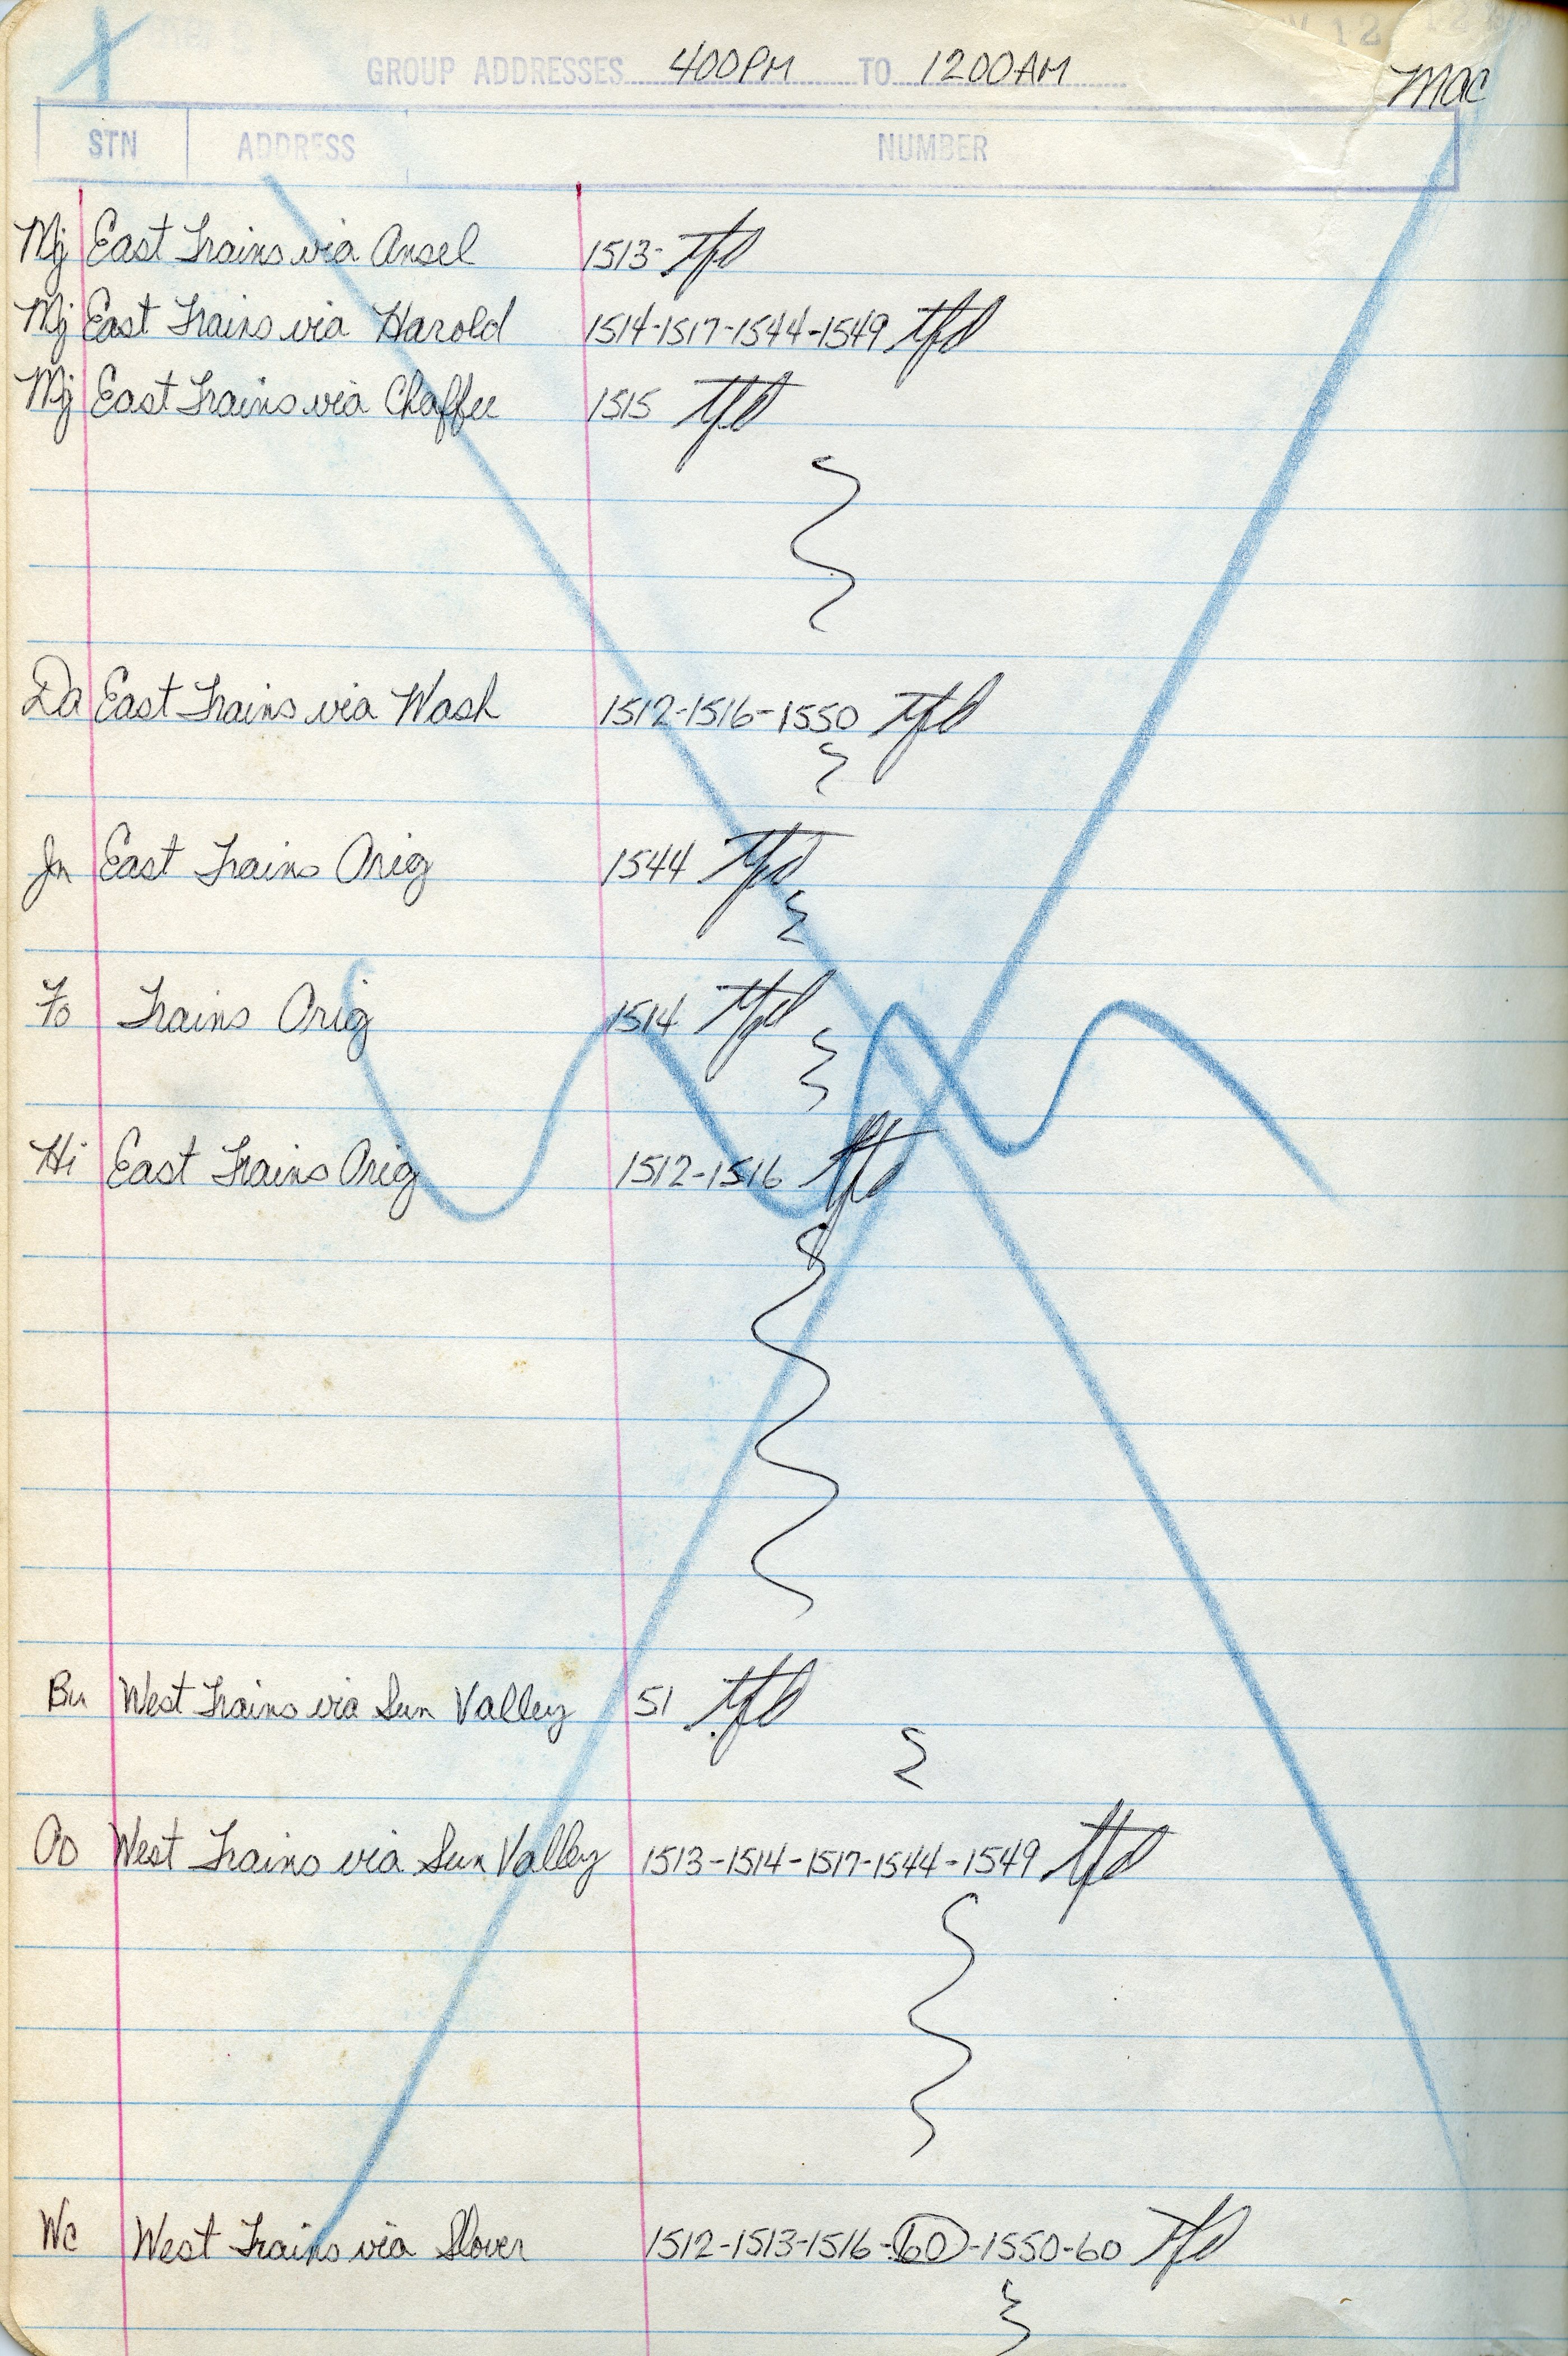 GROUP ADDRESSES 400PM TO 1200AM
Mac
STN ADDRESS NUMBER
Mj East Trains via Ansel 1513-
Mj East Trains via Harold 1514-1517-1544-1549
Mj East Trains via Chaffee 1515
Da East Trains via Wash 1512-1516-1550
Jn East Trains Orig 1544
Fo Trains Orig 1514
Hi East Trains Orig 1512-1516
Bu West Trains via Sun Valley 51
Oo West Trains via Sun Valley 1513-1514-1517-1544-1549
Wc West Trains via Slover 1512-1513-1516-60-1550-60